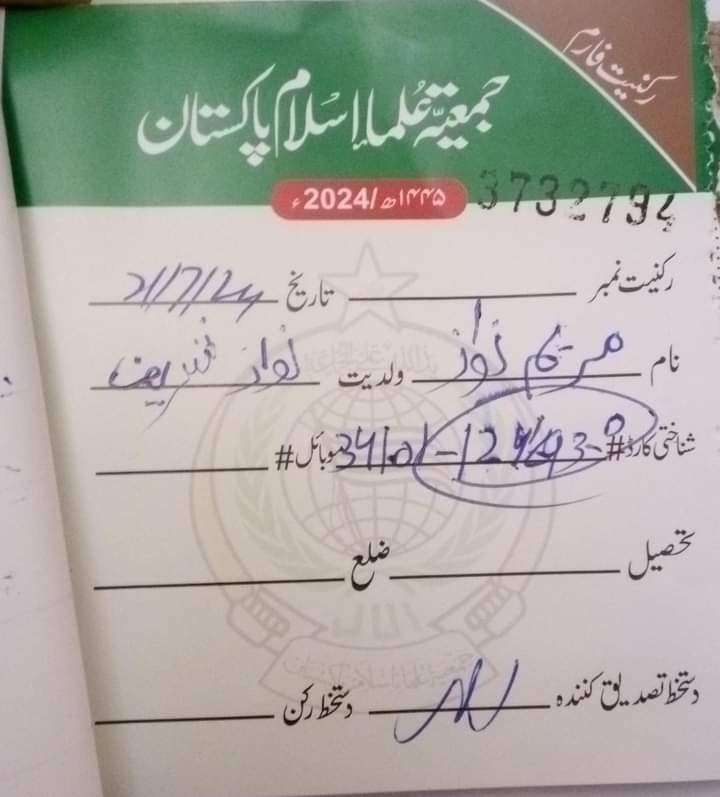 رکنیت فارم
جمعیۃ عُلماءِ اِسْلام پاکستان
۱۴۴۵ھ/2024ء
3732794
رکنیت نمبر تاریخ 21/7/24
نام مریم نواز ولدیت نواز شریف
شناختی کارڈ# موبائل#
تحصیل ضلع
دستخط تصدیق کنندہ دستخط رکن